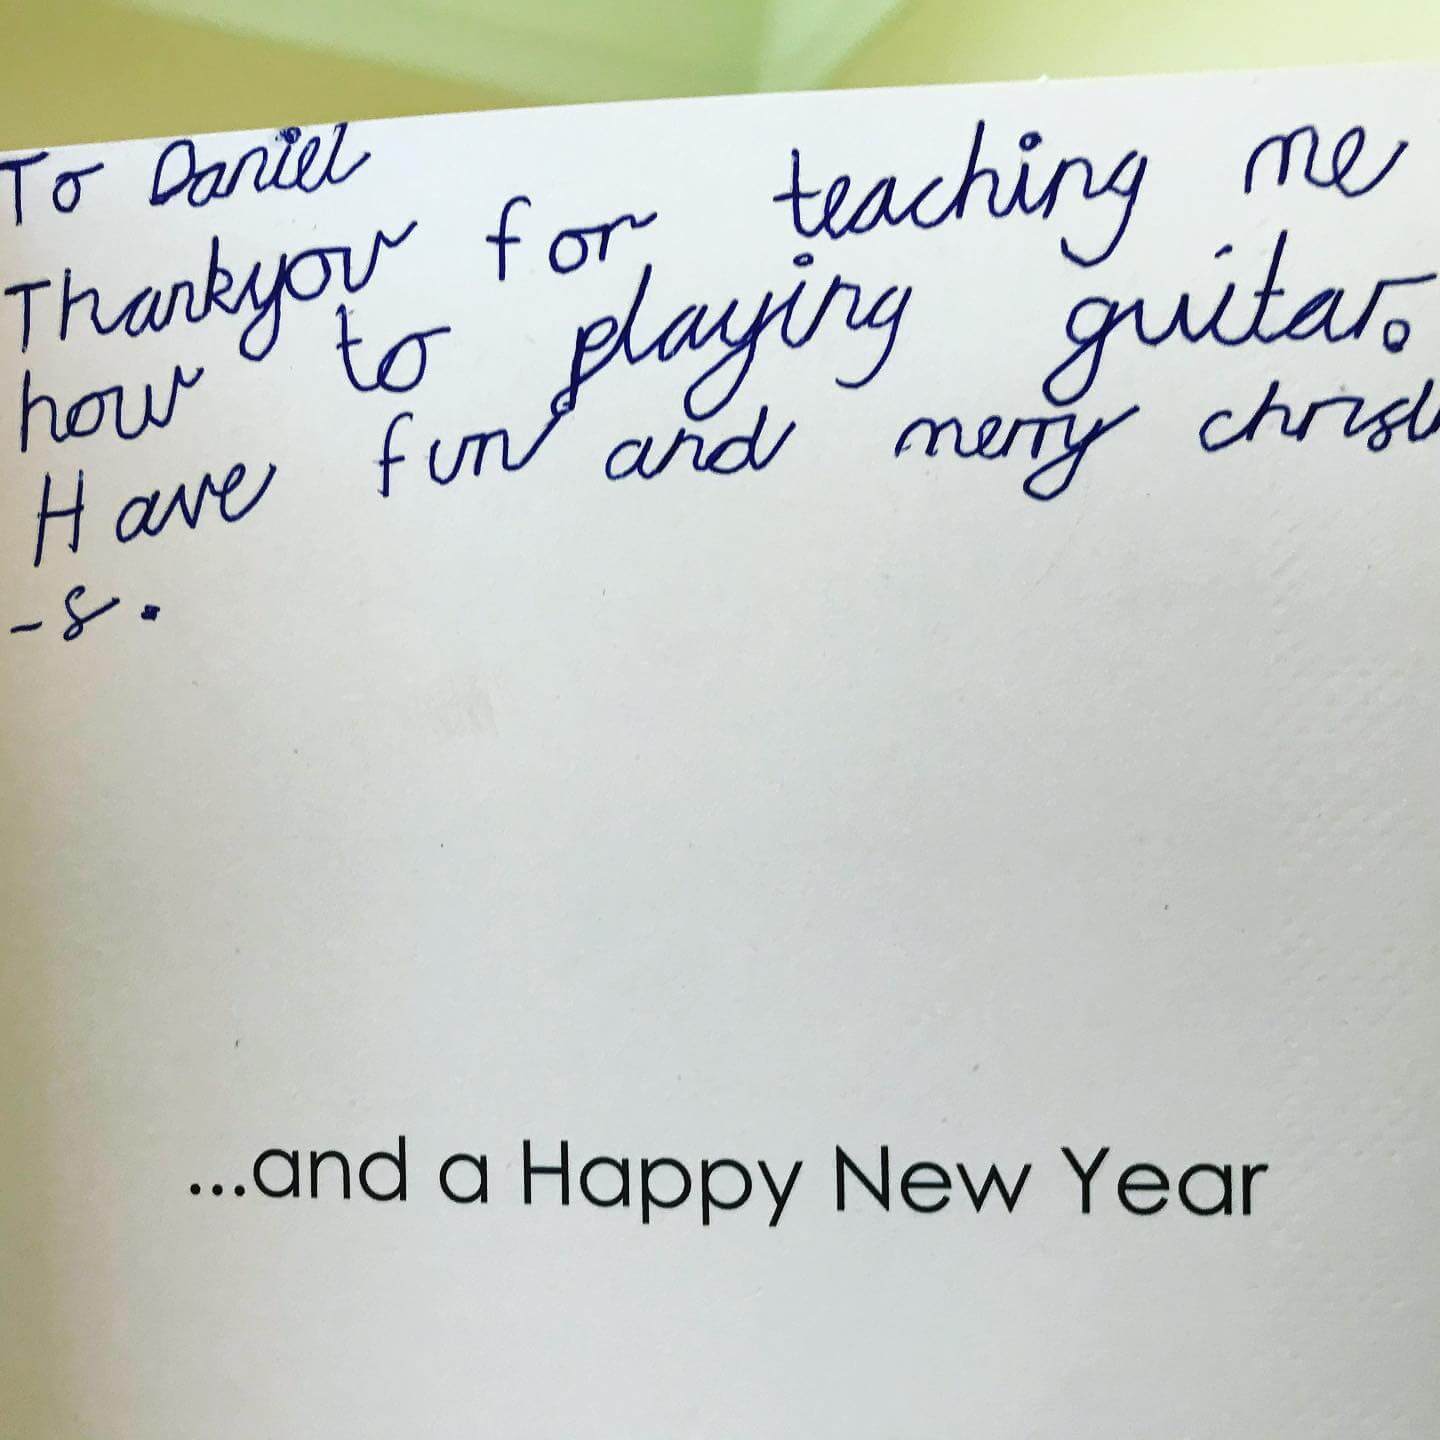 To Daniel
Thankyou for teaching me
how to playing guitar.
Have fun and merry christ
-s.
...and a Happy New Year